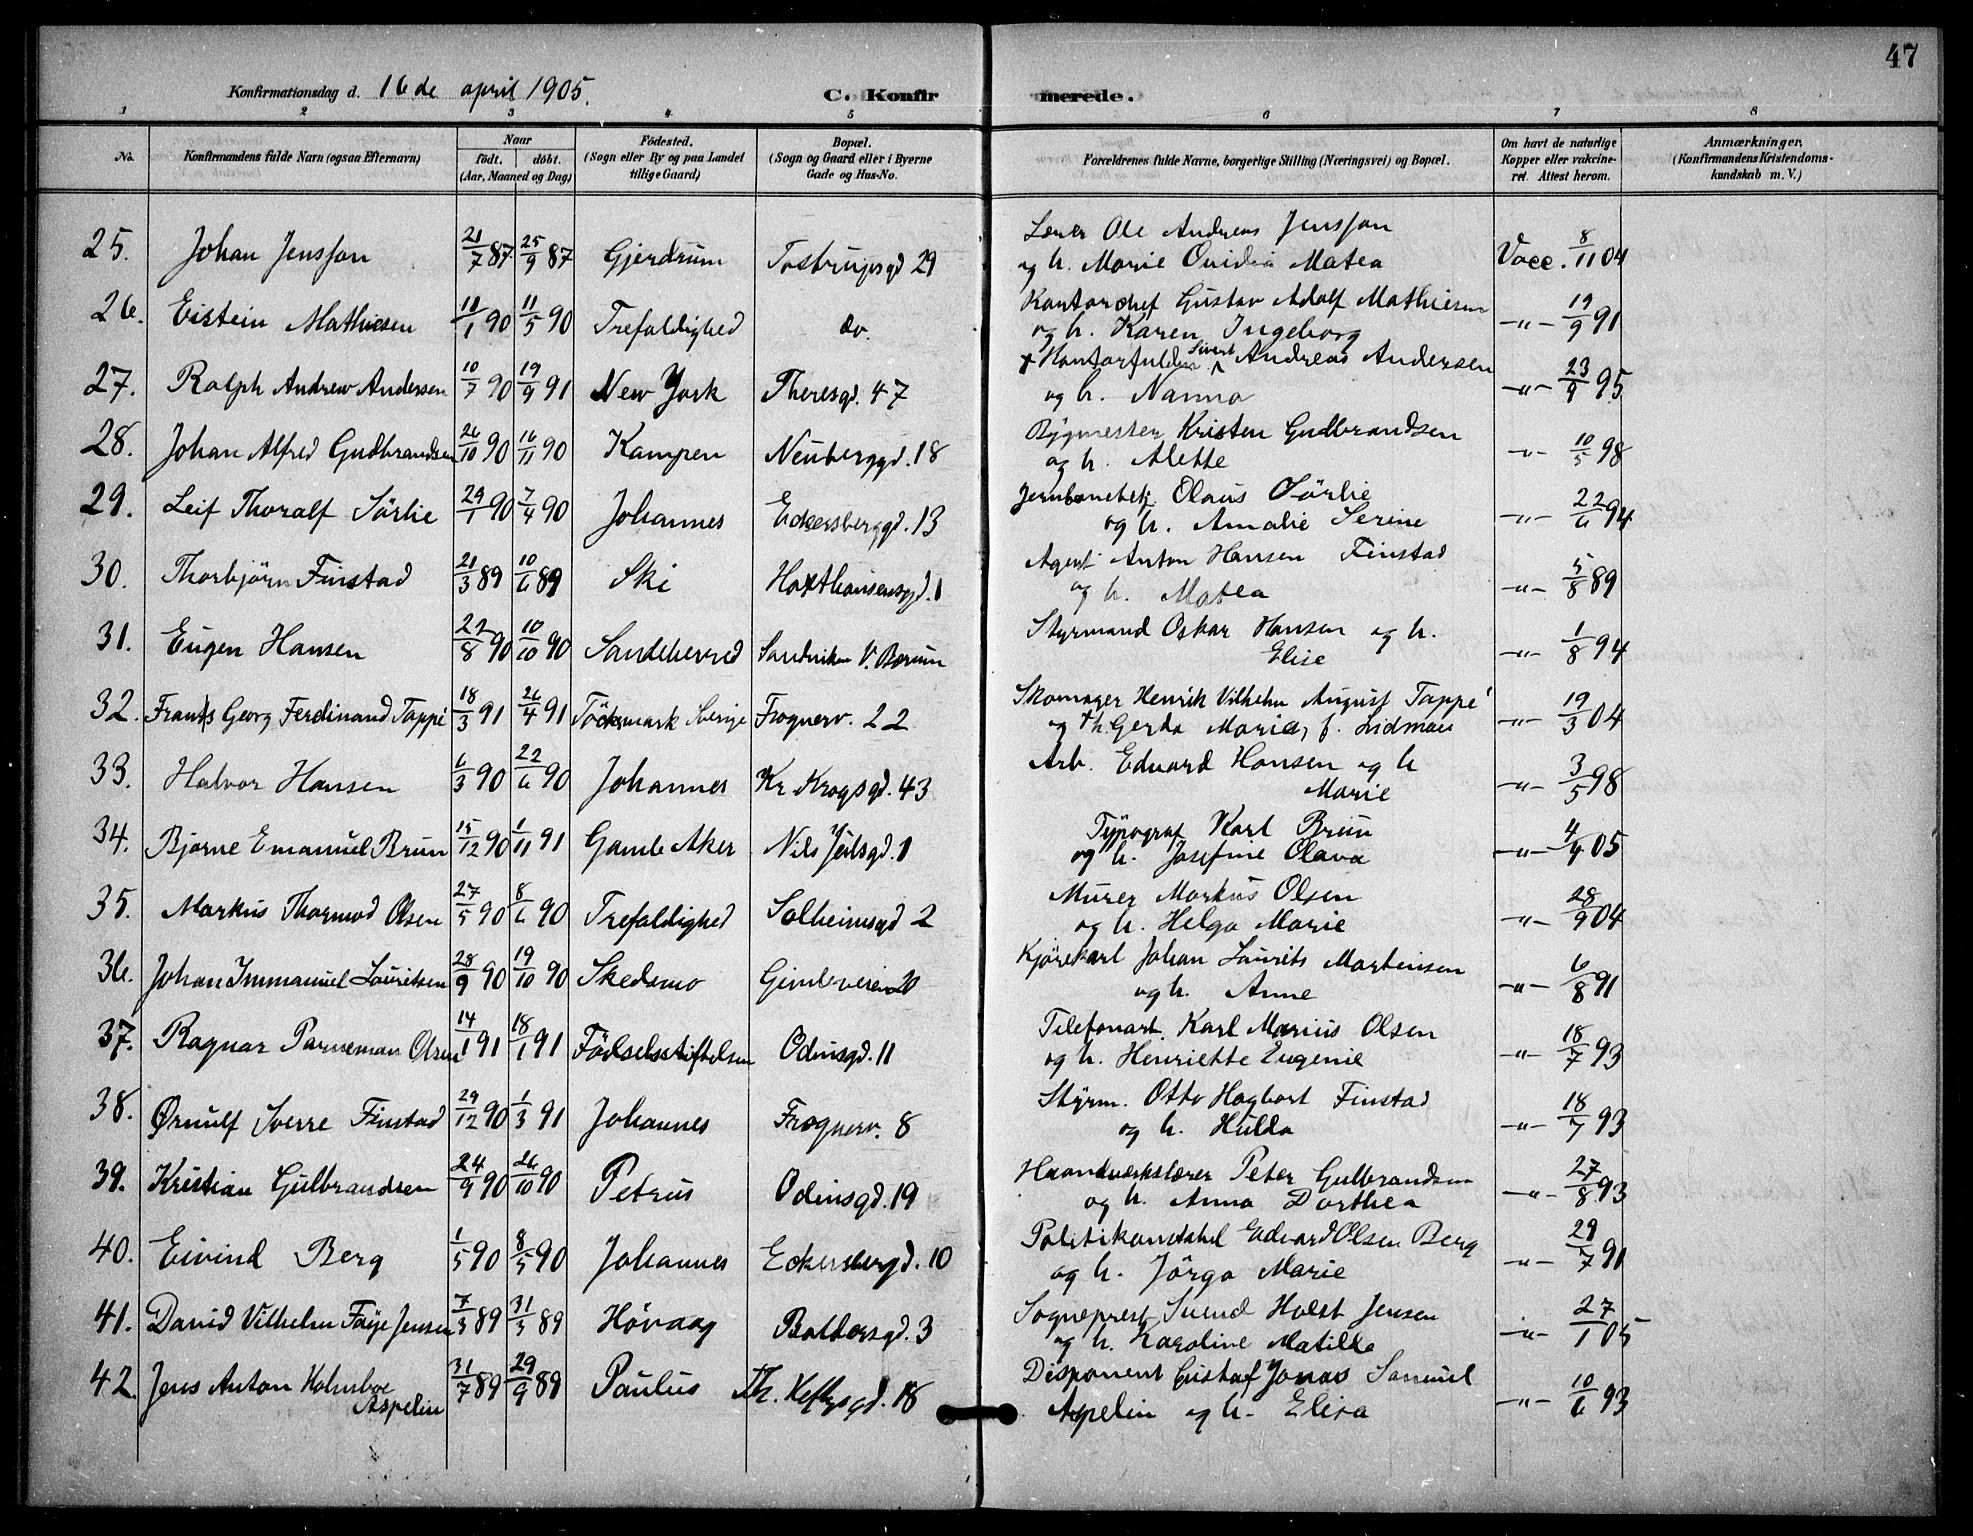 47
Konfirmationsdag d. 16de april 1905.
C. Konfirmerede.
1 2 3 4 5 6 7 8
No.
Konfirmandens fulde Navn (ogsaa Efternavn)
Naar
født. døbt.
(Aar, Maaned og Dag)
Fødested.
(Sogn eller By og paa Landet
tillige Gaard)
Bopæl.
(Sogn og Gaard eller i Byerne
Gade og Hus-No.
Forældrenes fulde Navne, borgerlige Stilling (Næringsvei) og Bopæl.
Om havt de naturlige
Kopper eller vakcine-
ret. Attest herom.
Anmærkninger,
(Konfirmandens Kristendoms-
kundskab m. V.)
25. Johan Jensson 21/7 87 25/9 87 Gjerdrum Tostrupsgd 29 Lærer Ole Andreas Jensson
og h. Marie Ovidia Matea Vacc. 8/11 04
26. Eistein Mathiesen 11/1 90 11/5 90 Trefoldighed do. Kontorchef Gustav Adolf Mathiesen
og h. Karen Ingeborg -"- 19/9 91
27. Ralph Andrew Andersen 10/7 90 19/9 91 New York Theresgd. 47 + Kontorfuldm Sivert Andreas Andersen
og h. Nanna -"- 23/9 95
28. Johan Alfred Gudbrandsen 26/10 90 16/11 90 Kampen Neuberggd. 18 Bygmester Kristen Gudbrandsen
og h. Alette -"- 10/5 98
29. Leif Thoralf Sörlie 29/1 90 7/4 90 Johannes Eckersberggd. 13 Jernbanebetj. Olaus Sörlie
og h. Amalie Serine -"- 22/6 94
30. Thorbjörn Finstad 21/3 89 10/6 89 Ski Haxthausensgd. 1 Agent Anton Hansen Finstad
og h. Matea -"- 5/8 89
31. Eugen Hansen 22/8 90 10/10 90 Sandeherred Sandviken V. Bærum Styrmand Oskar Hansen og h.
Elise -"- 1/8 94
32. Frants Georg Ferdinand Tappé 18/3 91 26/4 91 Töcksmark Sverige Frognerv. 22 Skomager Henrik Vilhelm August Tappé
og +h. Gerda Maria, f. Lidman -"- 19/3 04
33. Halvor Hansen 6/3 90 22/6 90 Johannes Kr Krogsgd. 43 Arb. Edvard Hansen og h
Marie -"- 3/5 98
34. Bjarne Emanuel Brun 15/12 90 1/11 91 Gamle Aker Nils Juilsgd. 1 Typograf Karl Brun
og h. Josefine Olava -"- 4/4 05
35. Markus Thormod Olsen 27/5 90 8/6 90 Trefoldighed Solheimsgd 2 Murer Markus Olsen
og h. Helga Marie -"- 28/9 04
36. Johan Immanuel Lauritsen 28/9 90 19/10 90 Skedsmo Gimleveien 20 Kjörekarl Johan Laurits Martinsen
og h. Anne -"- 6/8 91
37. Ragnar Parneman Olsen 14/1 91 18/1 91 Födselsstiftelsen Odinsgd. 11 Telefonarb. Karl Marius Olsen
og h. Henriette Eugenie -"- 18/7 93
38. Ørnulf Sverre Finstad 29/12 90 1/3 91 Johannes Frognerv. 8 Styrm. Otto Hagbart Finstad
og h. Hulda -"- 18/7 93
39. Kristian Gulbrandsen 24/9 90 26/10 90 Petrus Odinsgd. 19 Haandværkslærer Peter Gulbrandsen
og h. Anna Dorthea -"- 27/8 93
40. Eivind Berg 1/5 90 8/5 90 Johannes Eckersbergd. 10 Politikonstabel Edvard Olsen Berg
og h. Jörga Marie -"- 29/7 91
41. David Vilhelm Faye Jensen 7/3 89 31/3 89 Hövaag Baldersgd. 3 Sogneprest Svend Holst Jensen
og h. Karoline Matilde -"- 27/1 05
42. Jens Anton Holmboe
Aspelin 31/7 89 29/9 89 Paulus Th. Heftysgd. 18 Disponent Gustaf Jonas Samuel
Aspelin og h. Elisa -"- 10/6 93